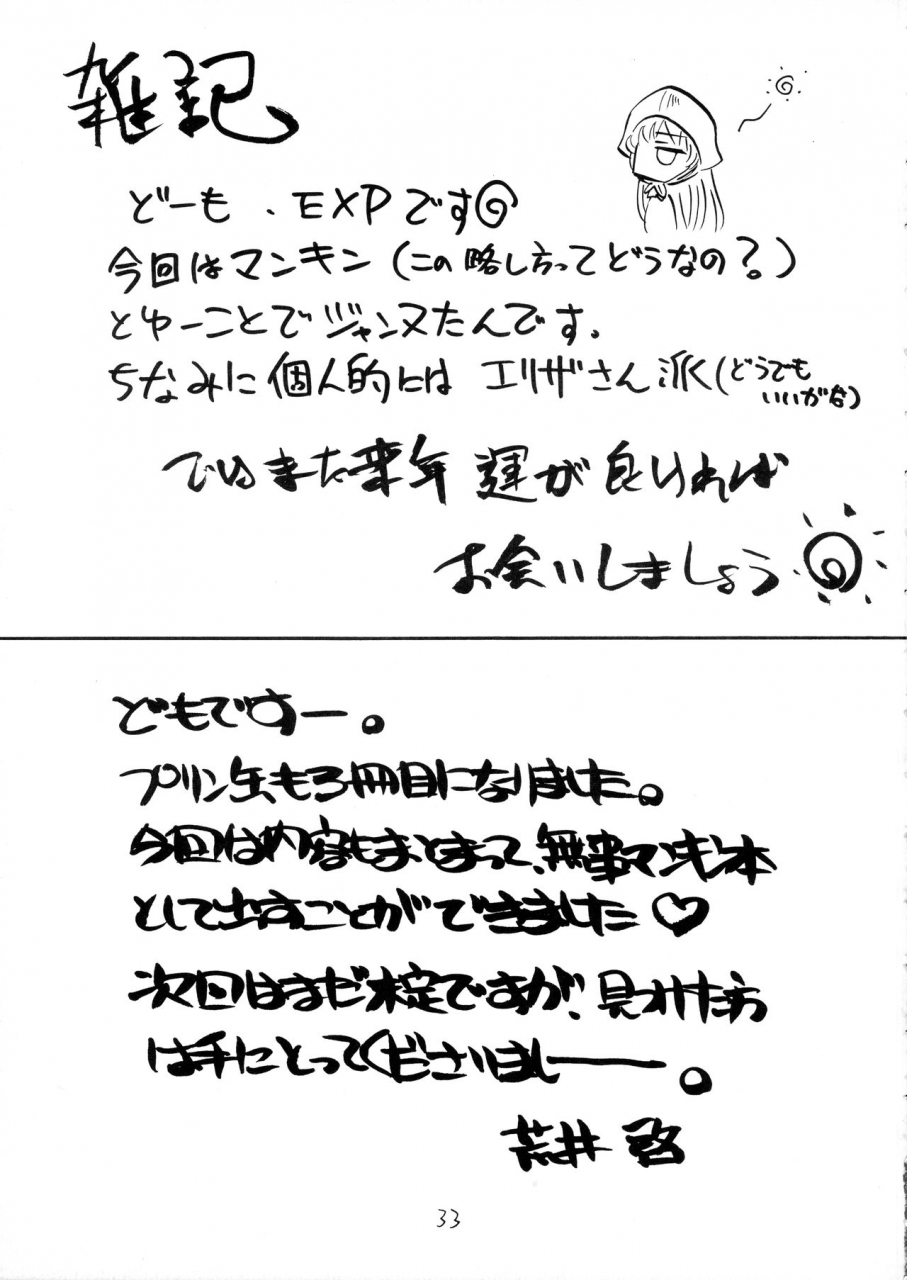 雑記
どーも、EXPです
今回はマンキン(この略し方ってどうなの?。)
とゆーことでジャンヌたんです。
ちなみに個人的には エリザさん派(どうでも
いいがな)
でわまた来年 運が良ければ
お会いしましょう
どもですー。
プリン缶も3冊目になりました。
今回は内容もまとまって、無事マンキン本
として出すことができました♡
次回はまだ未定ですが、見つけた方
は手にとってくださいましー。
荒井 啓
33